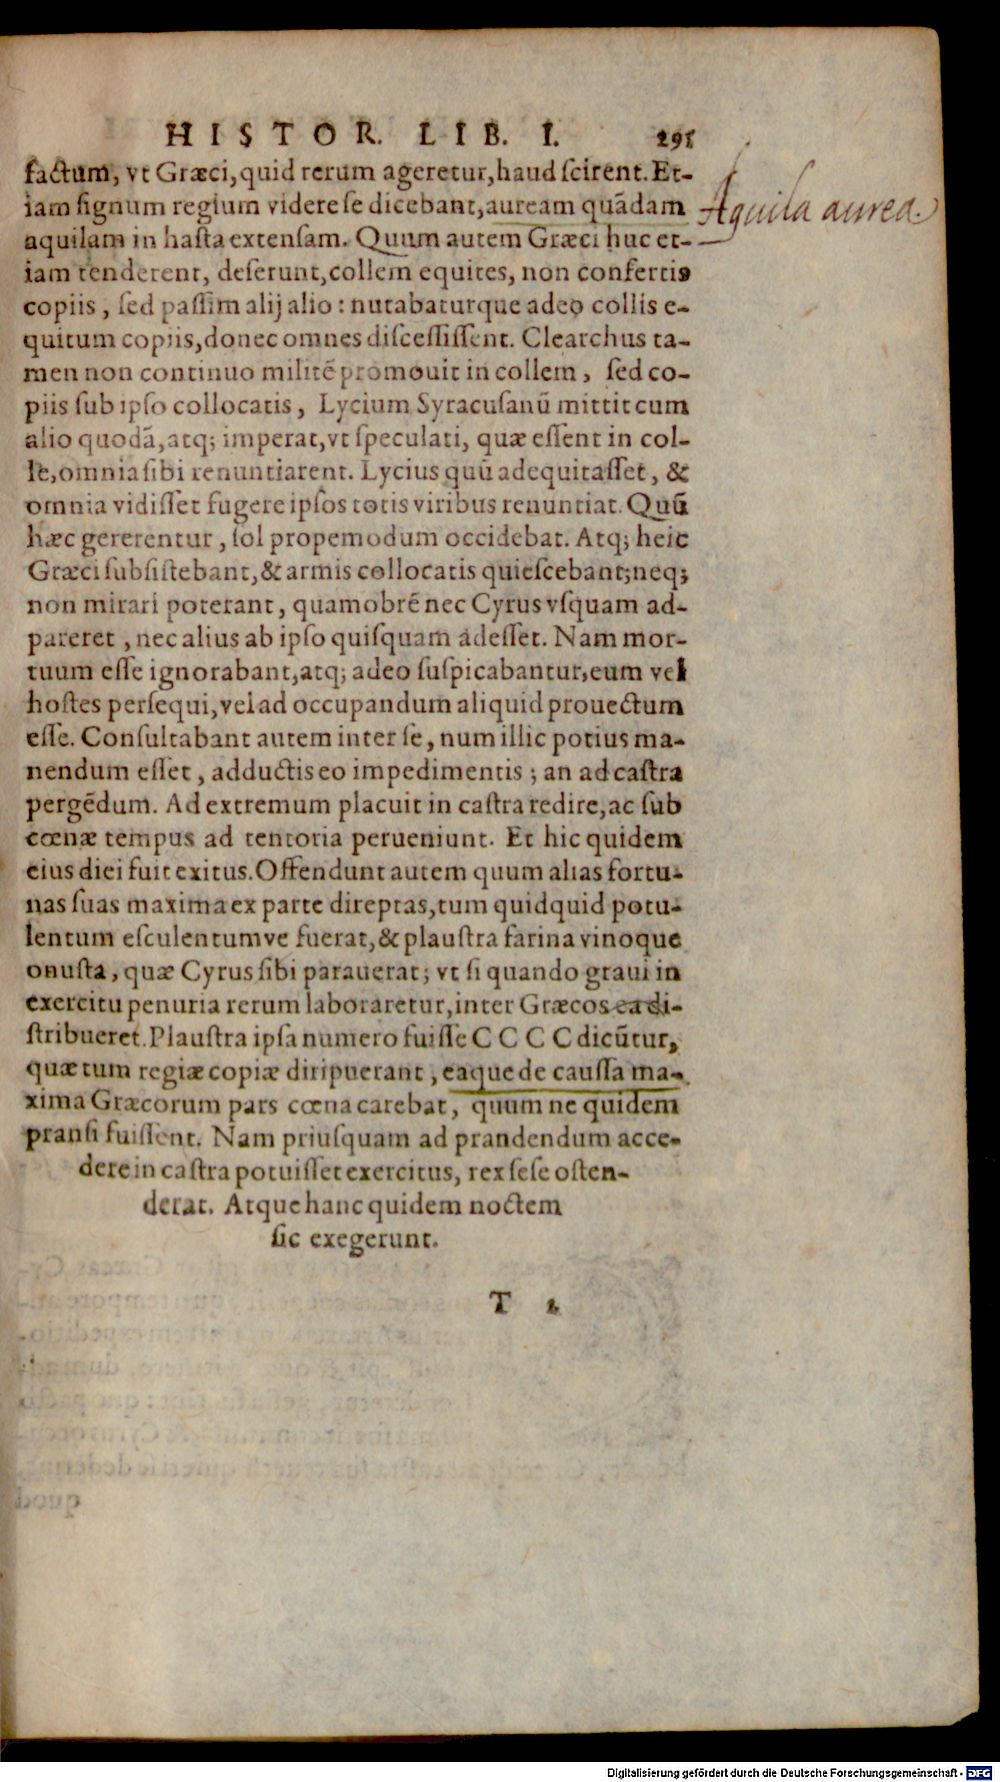 HISTOR. LIB. I. 291
factum, vt Græci, quid rerum ageretur, haud scirent. Et-
iam signum regium videre se dicebant, auream quãdam
Aquila aurea.
aquilam in hasta extensam. Quum autem Græci huc et-
iam tenderent, deserunt, collem equites, non confertis
copiis, sed passim alij alio: nutabaturque adeo collis e-
quitum copiis, donec omnes discessissent. Clearchus ta-
men non continuo militẽ promouit in collem, sed co-
piis sub ipso collocatis, Lycium Syracusanũ mittit cum
alio quodã, atq; imperat, vt speculati, quæ essent in col-
le, omnia sibi renuntiarent. Lycius quũ adequitasset, &
omnia vidisset fugere ipsos totis viribus renuntiat. Quũ
hæc gererentur, sol propemodum occidebat. Atq; heic
Græci subsistebant, & armis collocatis quiescebant; neq;
non mirari poterant, quamobrẽ nec Cyrus vsquam ad-
pareret, nec alius ab ipso quisquam adesset. Nam mor-
tuum esse ignorabant, atq; adeo suspicabantur, eum vel
hostes persequi, vel ad occupandum aliquid prouectum
esse. Consultabant autem inter se, num illic potius ma-
nendum esset, adductis eo impedimentis; an ad castra
pergẽdum. Ad extremum placuit in castra redire, ac sub
cœnæ tempus ad tentoria perueniunt. Et hic quidem
eius diei fuit exitus. Offendunt autem quum alias fortu-
nas suas maxima ex parte direptas, tum quidquid potu-
lentum esculentumve fuerat, & plaustra farina vinoque
onusta, quæ Cyrus sibi parauerat; vt si quando graui in
exercitu penuria rerum laboraretur, inter Græcos ea di-
stribueret. Plaustra ipsa numero fuisse CCCC dicũtur,
quæ tum regiæ copiæ diripuerant, eaque de caussa ma-
xima Græcorum pars cœna carebat, quum ne quidem
pransi fuissent. Nam priusquam ad prandendum acce-
dere in castra potuisset exercitus, rex sese osten-
derat. Atque hanc quidem noctem
sic exegerunt.
T 2
Digitalisierung gefördert durch die Deutsche Forschungsgemeinschaft - DFG